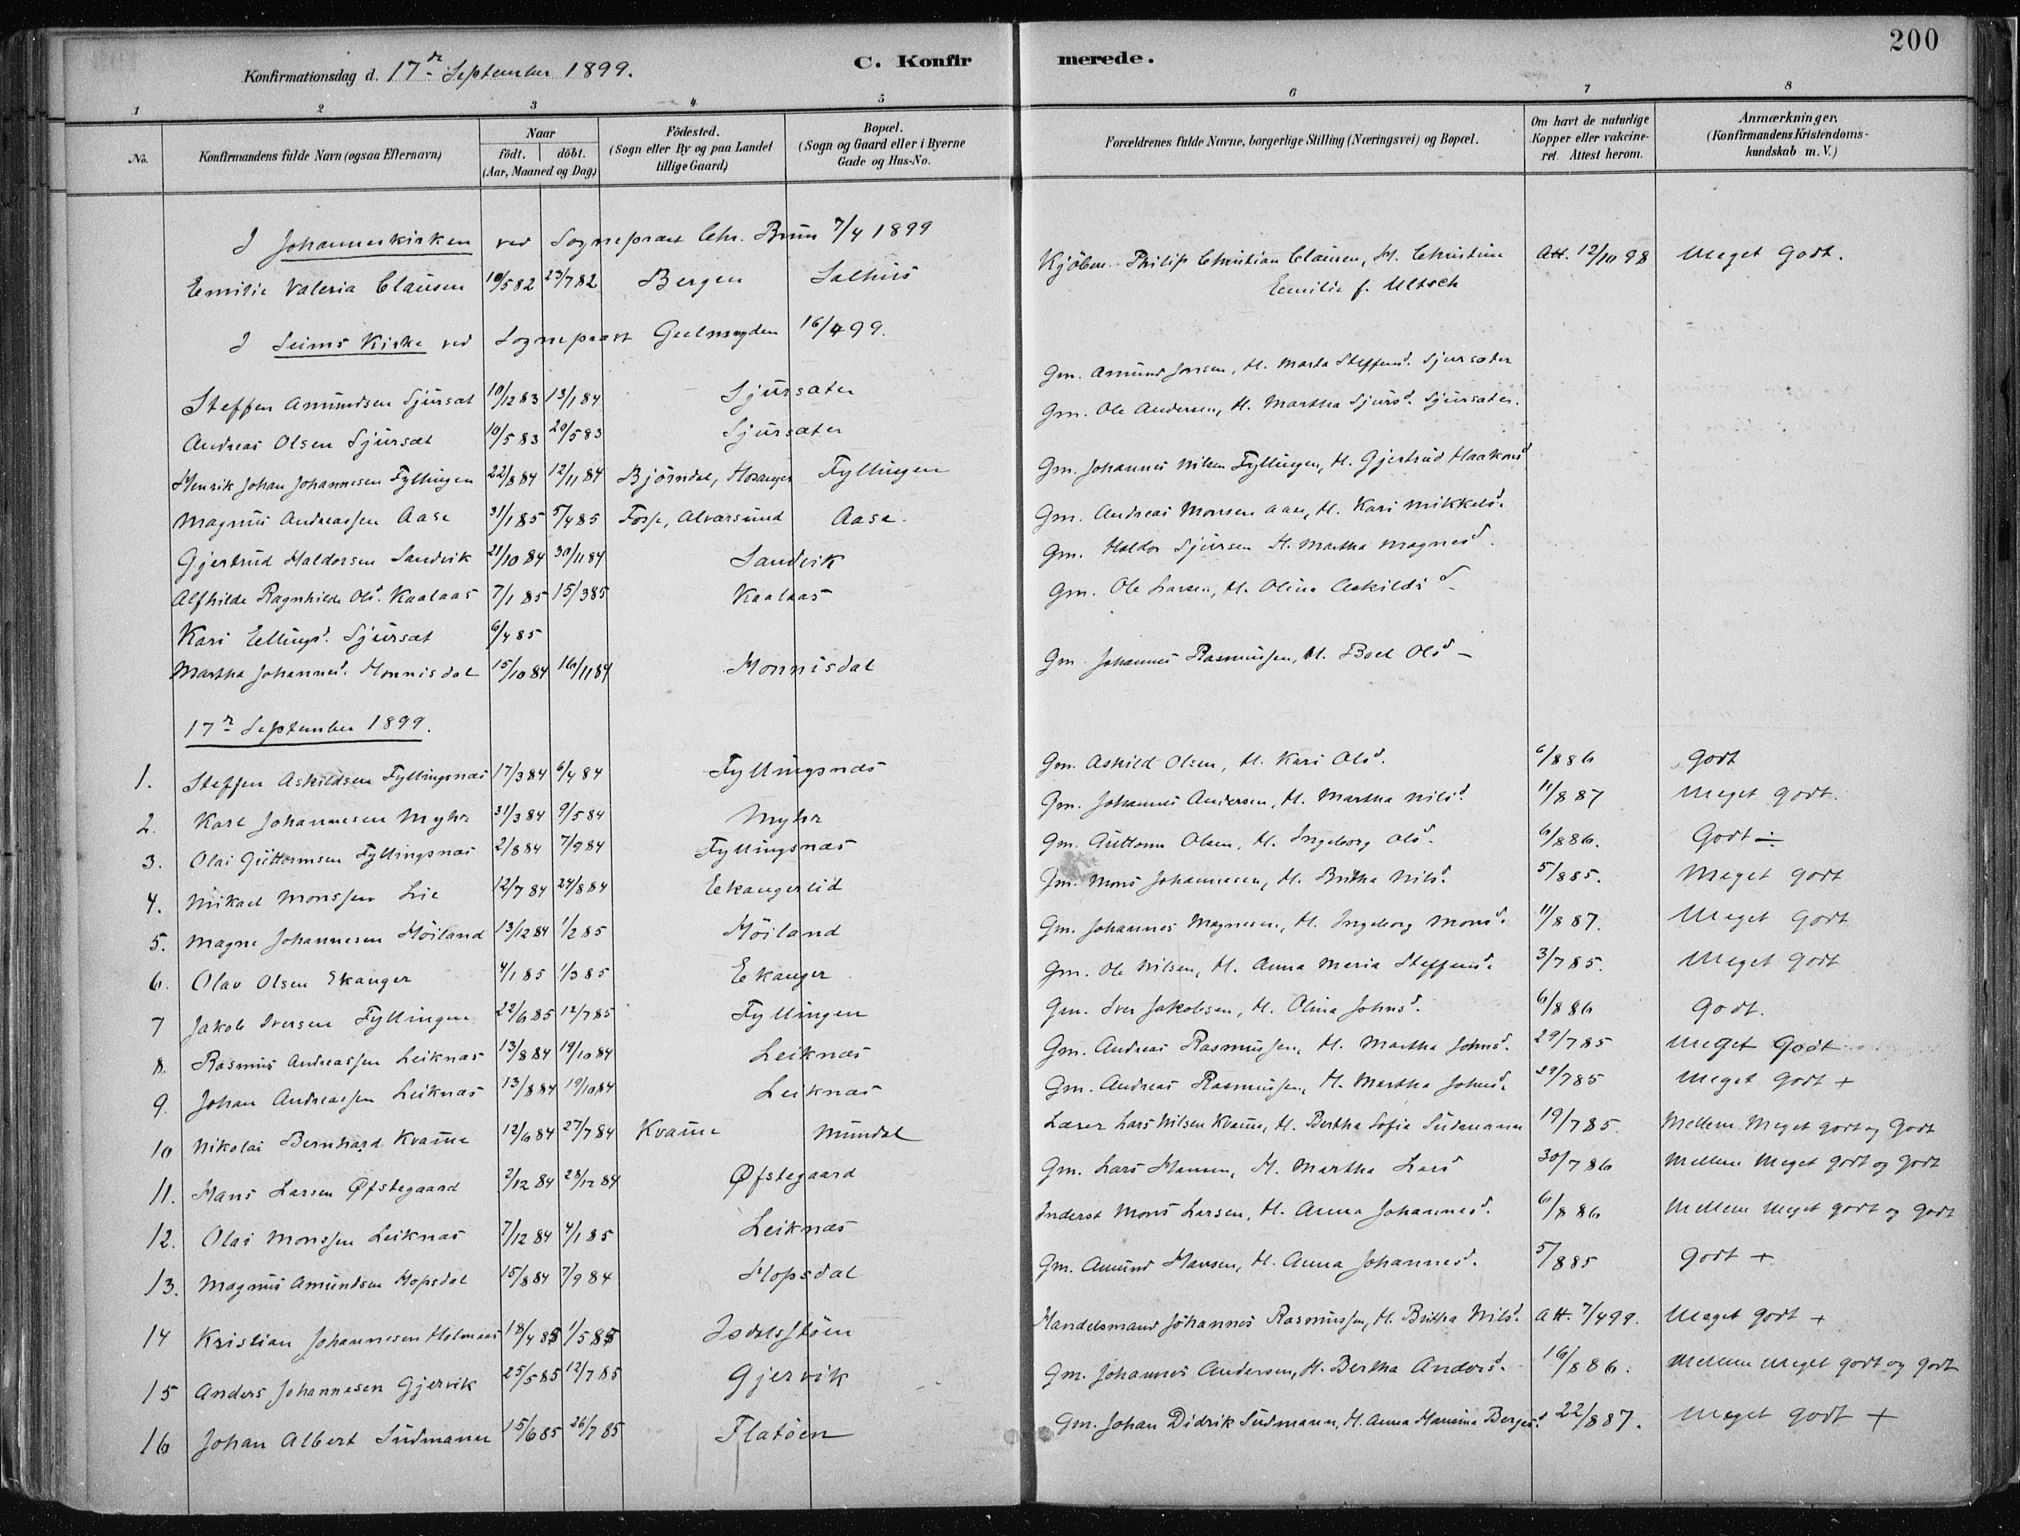 200
Konfirmationsdag d. 17de September 1899. C. Konfirmerede.
1 2 3 4 5 6 7 8
No. Konfirmandens fulde Navn (ogsaa Efternavn) Naar födt. döbt. (Aar, Maaned og Dag) Födested. (Sogn eller By og paa Landet tillige Gaard) Bopæl. (Sogn og Gaard eller i Byerne Gade og Hus-No. Forældrenes fulde Navne, borgerlige Stilling (Næringsvei) og Bopæl. Om havt de naturlige Kopper eller vakcineret. Attest herom. Anmærkninger. (Konfirmandens Kristendomskundskab m. V.)
I Johanneskirken ved Sognepræst Chr. Brun 7/4 1899
Emilie Valeria Clausen 10/5 82 23/7 82 Bergen Salhus Kjöbm. Philip Christian Clausen, H. Christine Emilie f. Ultsch Att. 12/10 98 Meget Godt.
I Seims Kirke ved Sognepræst 16/4 99.
Steffen Amundsen Sjursæt 10/12 83 13/1 84 Sjursæter Gm. Amund Jonsen, H. Marta Steffensd. Sjursæter
Andreas Olsen Sjursæt 10/5 83 20/5 83 Sjursæter Gm. Ole Andersen, H. Martha Sjursd. Sjursæter.
Henrik Johan Johannesen Fyllingen 22/8 84 12/11 84 Björndal, Hosanger Fyllingen Gm. Johannes Nilsen Fyllingen, H. Gjertrud Haakonsd
Magnus Andreassen Aase 31/1 85 5/4 85 Fosse, Alvarsund Aase. Gm. Andreas Monsen Aase, H. Kari Mikkelsd.
Gjertrud Haldorsen Sandvik 21/10 84 30/11 84 Sandvik Gm. Haldor Sjursen H. Martha Magnesd.
Alfhilde Ragnhilde Olsd. Kaalaas 7/1 85 15/3 85 Kaalaas Gm. Ole Larsen, H. Olina Askildsd
Kari Ellingsd. Sjursæt 6/4 85
Martha Johannesd. Honnisdal 15/10 84 16/11 84 Honnisdal Gm. Johannes Rasmussen, H. Boel Olsd
17de September 1899.
1. Steffen Askildsen Fyllingsnæs 17/3 84 6/4 84 Fyllingsnæs Gm. Askild Olsen, H. Kari Olsd. 6/8 86 Godt
2. Karl Johannesen Myhr 31/3 84 9/5 84 Myhr Gm. Johannes Andersen, H. Martha Nilsd. 11/8 87 Meget Godt.
3. Olai Guttormsen Fyllingsnæs 2/8 84 7/9 84 Fyllingsnæs Gm. Guttorm Olsen, H. Ingeborg Olsd. 6/8 86. Godt ÷
4. Mikael Monssen Lie 12/7 84 24/8 84 Ekangerlid Gm. Mons Johannesen, H. Britha Nilsd. 5/8 85. Meget Godt
5. Magne Johannesen Höiland 13/12 84 1/2 85 Höiland Gm. Johannes Magnesen, H. Ingeborg Monsd. 11/8 87. Meget Godt
6. Olav Olsen Ekanger 4/1 85 1/3 85 Ekanger Gm. Ole Nilsen, H. Anna Maria Steffensd. 3/7 85. Meget Godt
7 Jakob Iversen Fyllingen 22/6 85 12/7 85 Fyllingen Gm. Iver Jakobsen, H. Olina Johnsd. 6/8 86 Godt.
8. Rasmus Andreassen Leiknæs 13/8 84 19/10 84 Leiknæs Gm. Andreas Rasmussen, H. Martha Johnsd. 29/7 85 Meget Godt
9. Johan Andreassen Leiknæs 13/8 84 19/10 84 Leiknæs Gm. Andreas Rasmussen, H. Martha Johnsd. 29/7 85 Meget Godt +
10 Nikolai Bernhard Kvamme 12/6 84 27/7 84 Kvamme Mundal Lærer Lars Nilsen Kvamme, H. Bertha Sofia Sudmann 19/7 85. Mellem Meget godt og Godt
11. Hans Larsen Øfstegaard 2/12 84 28/12 84 Øfstegaard Gm. Lars Hansen, H. Martha Larsd 30/7 86 Mellem Meget Godt og Godt
12. Olai Monssen Leiknæs 7/12 84 4/1 85 Leiknæs Inderst Mons Larsen, H. Anna Johannesd. 6/8 86 Mellem Meget godt og Godt
13. Magnus Amundsen Hopsdal 15/8 84 7/9 84 Hopsdal Gm. Amund Hansen, H. Anna Johannesd. 5/8 85 Godt +
14 Kristian Johannesen Holmaas 18/4 85 1/5 85 Isdalstöen Handelsmand Johannes Rasmussen, H. Britha Nilsd. Att. 7/4 99. Meget Godt +
15 Anders Johannesen Gjervik 25/5 85 12/7 85 Gjervik Gm. Johannes Andersen, H. Bertha Andersd. 16/8 86. Mellem Meget godt og godt
16 Johan Albert Sudmann 15/6 85 26/7 85 Flatöen Gm. Johan Didrik Sudmann, H. Anna Marsina Bergesd. 22/8 87. Meget Godt +